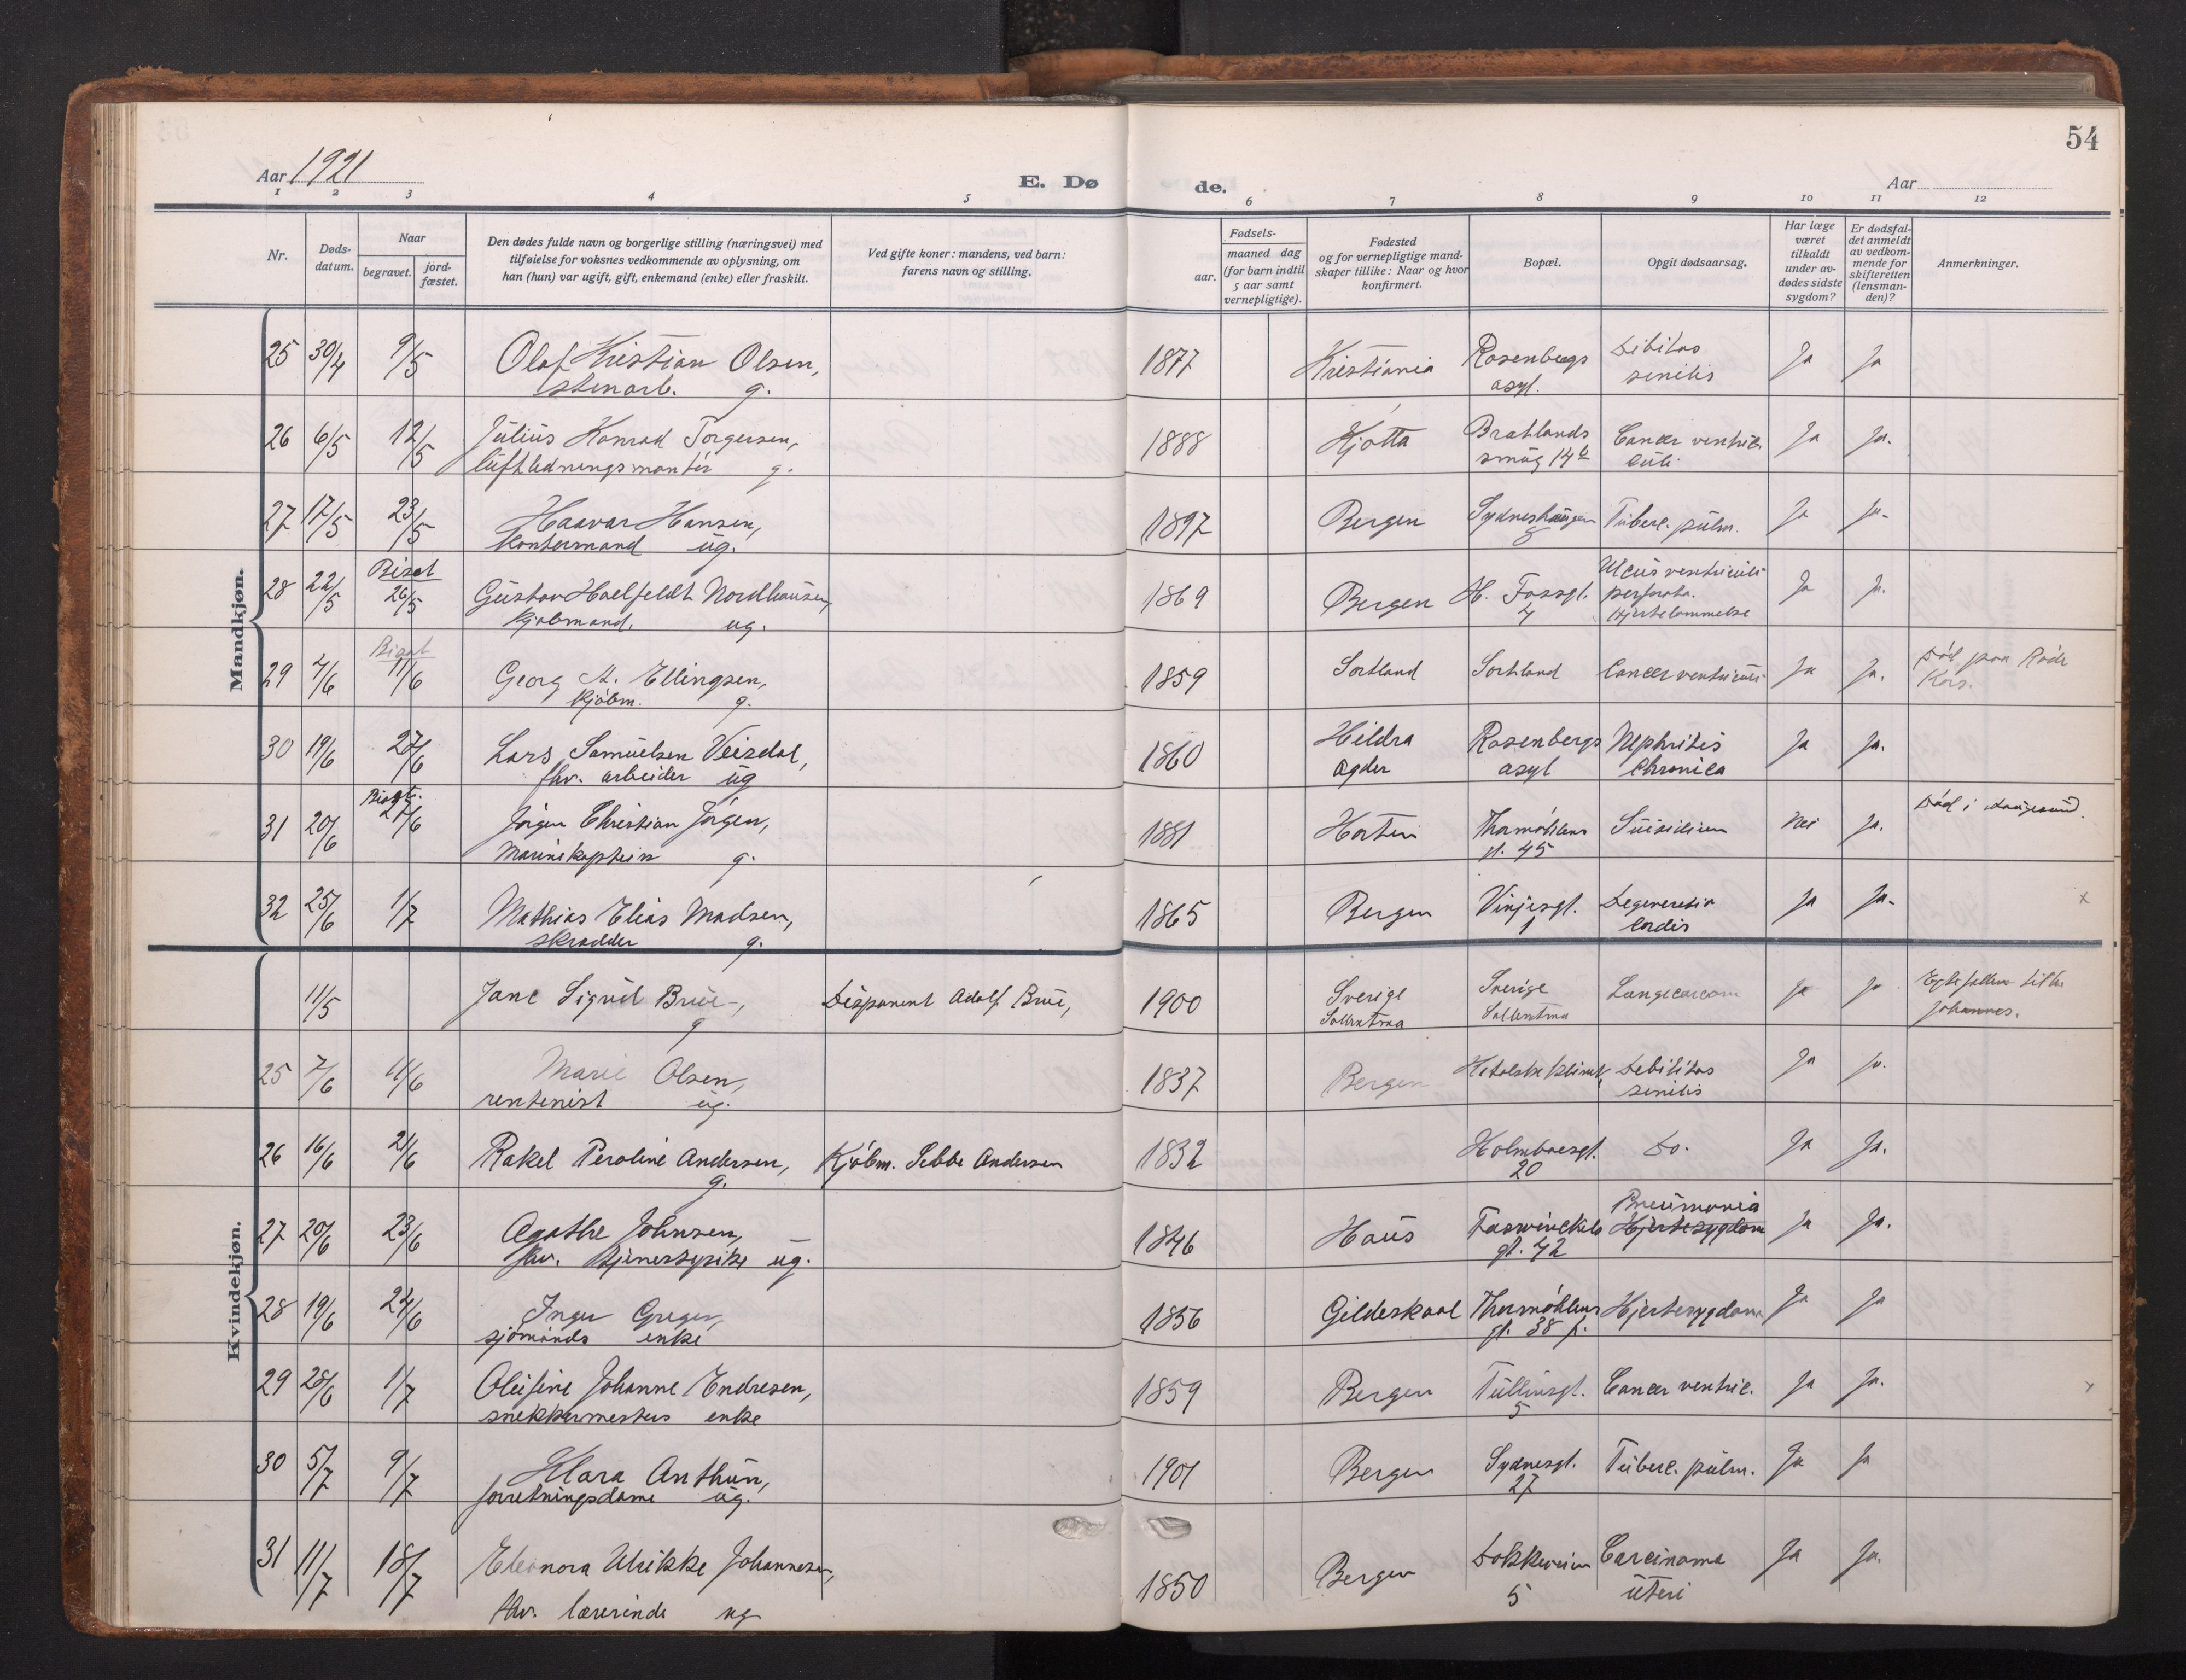 54
Aar 1921
E. Dø de.
Aar
1 2 3 4 5 6 7 8 9 10 11 12
Nr.
Døds-
datum.
Naar
begravet.
jord-
fæstet.
Den dødes fulde navn og borgerlige stilling (næringsvei) med
tilføielse for voksnes vedkommende av oplysning, om
han (hun) var ugift, gift, enkemand (enke) eller fraskilt.
Ved gifte koner: mandens, ved barn:
farens navn og stilling.
Fødsels-
aar.
maaned dag
(for barn indtil
5 aar samt
vernepligtige).
Fødested
og for vernepligtige mand-
skaper tillike: Naar og hvor
konfirmert.
Bopæl.
Opgit dødsaarsag.
Har læge
været
tilkaldt
under av-
dødes sidste
sygdom?
Er dødsfal-
det anmeldt
av vedkom-
mende for
skifteretten
(lensman-
den)?
Anmerkninger.
Mandkjøn.
25 30/4 9/5 Olaf Kristian Olsen, 1877 Kristiania Rosenbergs Debilitas Ja Ja
stenarb. g. asyl. senilis
26 6/5 12/5 Julius Konrad Torgersen, 1888 Kjøtta Bratlands Cancer ventric Ja Ja.
luftledningsmontør g. smug 14 culi
27 17/5 23/5 Haavar Hansen, 1897 Bergen Sydneshaugen Tuberc. pulm. Ja Ja.
Kontormand ug.
Bisat
28 22/5 26/5 Gustav Hoelfeldt Nordhausen, 1869 Bergen H. Fossgt. Ulcus ventriculi Ja Ja.
kjøbmand. ug. 4 perforata.
Hjertelammelse
Bisat
29 7/6 11/6 Georg A. Ellingsen, 1859 Sortland Sortland Cancer ventriculi Ja Ja. Død paa Røde
Kjøbm. g. Kors.
30 19/6 27/6 Lars Samuelsen Veisdal, 1860 Hildra Rosenbergs Nephritis Ja Ja.
fhv. arbeider ug Agder asyl Chronica
Bisat.
31 20/6 27/6 Jørgen Christian Jørgen, 1881 Horten Thormøhlens Suisidium Nei Ja. Død i Langesund.
Marinekaptein g. gt. 45
32 25/6 1/7 Mathias Elias Madsen, 1865 Bergen Vinjesgt. Degeneratio Ja Ja. x
skrædder g. 1 Cordis
Kvindekjøn.
11/5 Jane Sigrid Brue, Disponent Adolf Brue, 1900 Sverige Sverige Lungesarcom Ja Ja
g Sollentuna Sollentuna Johannes.
25 7/6 11/6 Marie Olsen, 1837 Bergen Debilitas Ja Ja.
rentenist ug. senilis
26 16/6 21/6 Rakel Peroline Andersen, Kjøbm. Sebbe Andersen 1832 Holmboesgt. Do. Ja Ja.
g. 20
27 20/6 23/6 Agathe Johnsen, 1846 Haus Foswinckels Pneumonia Ja Ja.
fhv. tjenerstpike ug. gt. 42 Hjertesygdom
28 19/6 24/6 Inger Greger, 1856 Gildeskaal Thormøhlens Hjertesygdom Ja Ja
sjømands enke gt. 38 f.
29 28/6 1/7 Olufine Johanne Endresen, 1859 Bergen Tullinsgt. Cancer ventric. Ja Ja.
snekkermesters enke 5
30 5/7 9/7 Klara Anthun, 1901 Bergen Sydnesgt. Tuberc. pulm. Ja Ja
forretningsdame ug. 27
31 11/7 18/7 Eleonora Ulrikke Johannesen, 1850 Bergen Dokkeveien Carcinoma Ja Ja.
fhv. lærerinde ug 5 uteri